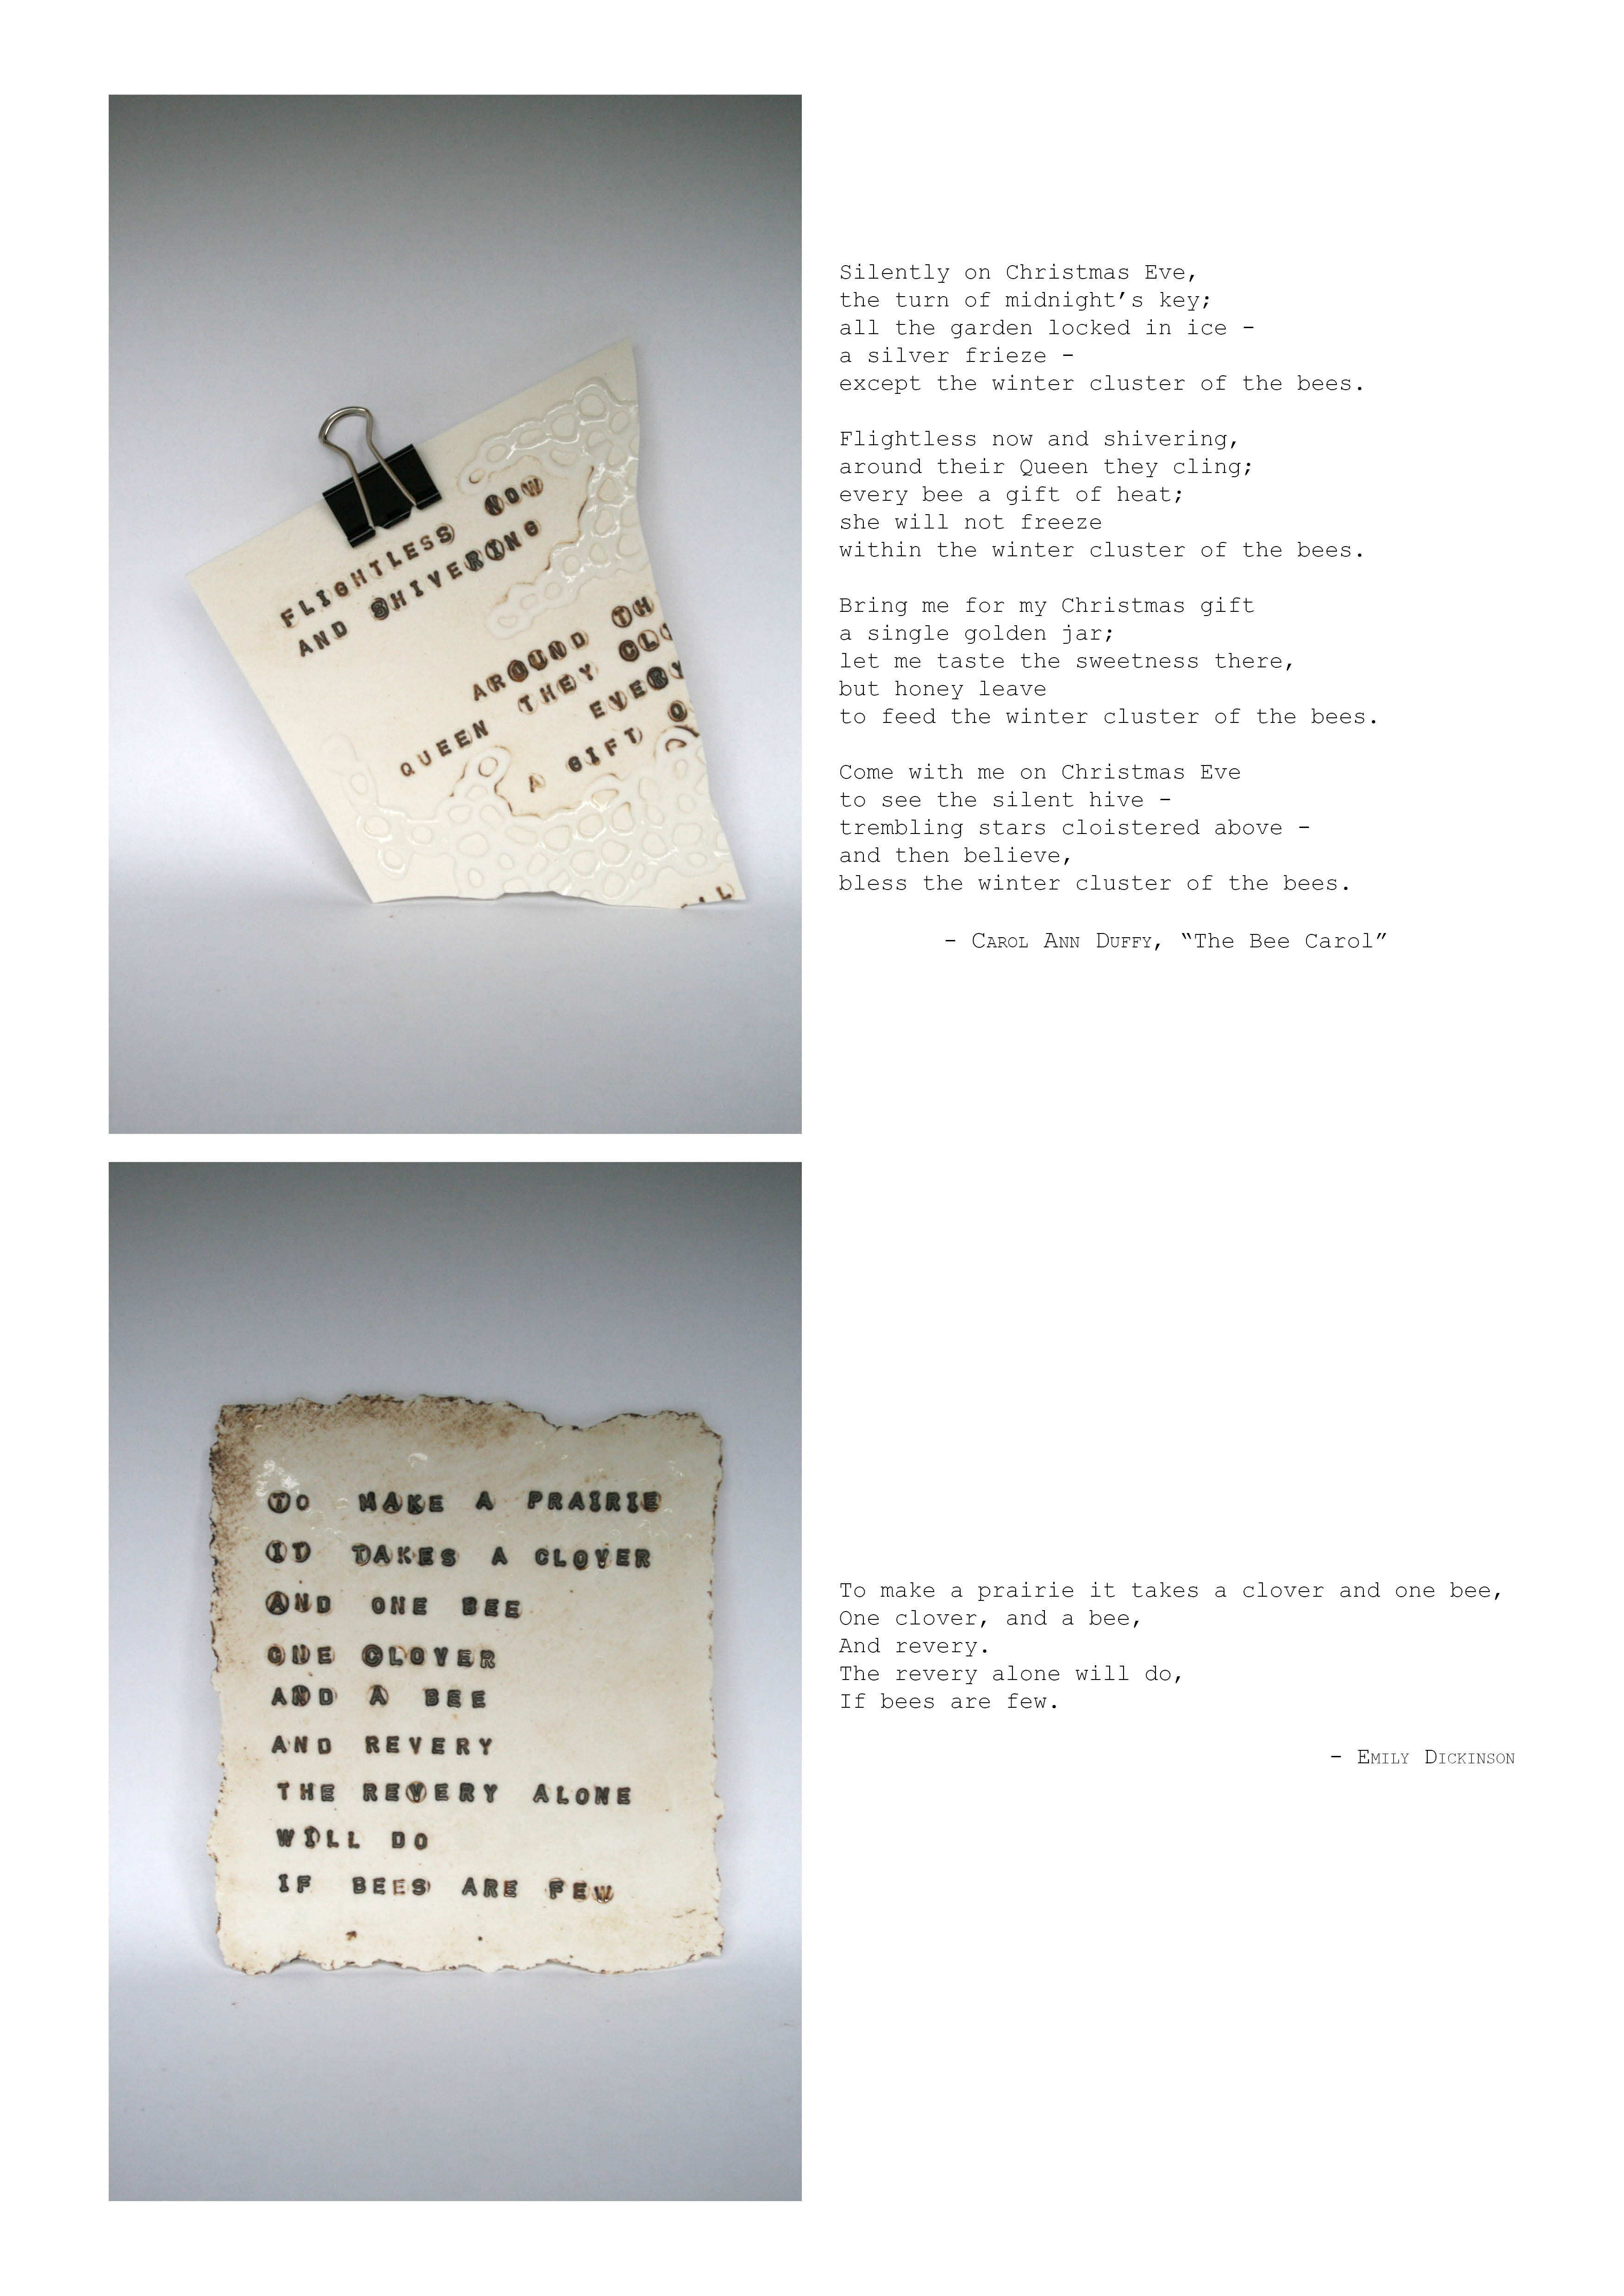 FLIGHTLESS NOW
AND SHIVERING
AROUND
QUEEN THEY
EVERY
A GIFT
Silently on Christmas Eve,
the turn of midnight’s key;
all the garden locked in ice -
a silver frieze -
except the winter cluster of the bees.
Flightless now and shivering,
around their Queen they cling;
every bee a gift of heat;
she will not freeze
within the winter cluster of the bees.
Bring me for my Christmas gift
a single golden jar;
let me taste the sweetness there,
but honey leave
to feed the winter cluster of the bees.
Come with me on Christmas Eve
to see the silent hive -
trembling stars cloistered above -
and then believe,
bless the winter cluster of the bees.
- CAROL ANN DUFFY, “The Bee Carol”
TO MAKE A PRAIRIE
IT TAKES A CLOVER
AND ONE BEE
ONE CLOVER
AND A BEE
AND REVERY
THE REVERY ALONE
WILL DO
IF BEES ARE FEW
To make a prairie it takes a clover and one bee,
One clover, and a bee,
And revery.
The revery alone will do,
If bees are few.
- EMILY DICKINSON